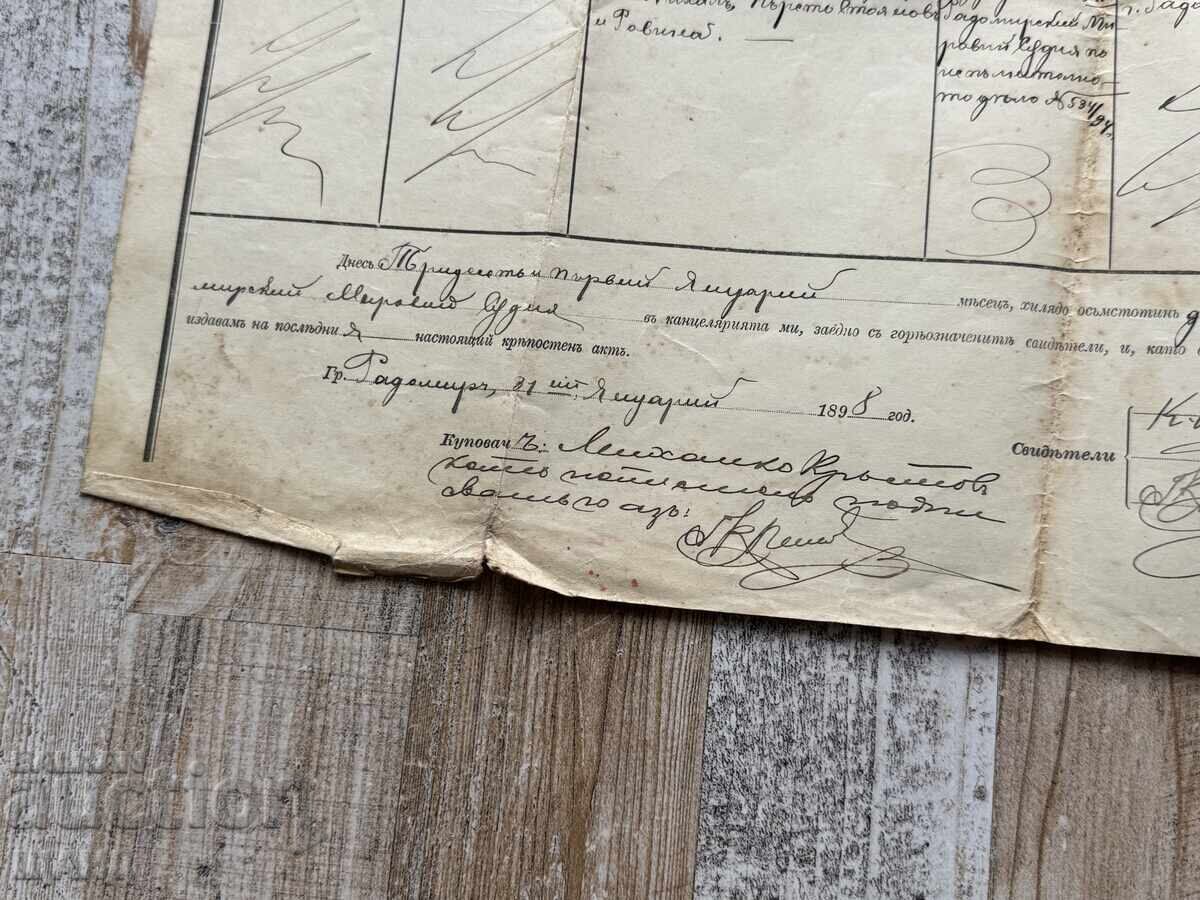 Кърсто Стояновъ
и Ровина. —
Радомирский Ми-
ровий Судия по
исполнително-
то дѣло № 534/94.
г. Радо
Днесъ Тридесеть и първий Януарий мѣсецъ, хилядо осъмстотинъ
мирский Мировий Судия въ канцелярията ми, заедно съ горѣозначенитѣ свидѣтели, и, като
издавамъ на послѣдния настоящий крѣпостенъ актъ.
Гр. Радомиръ, 31 ий Януарий 1898 год.
Куповачъ: Михалко Кръстовъ
като неписменъ подпи
валъ го азъ:
Свидѣтели
BALKAN
auction